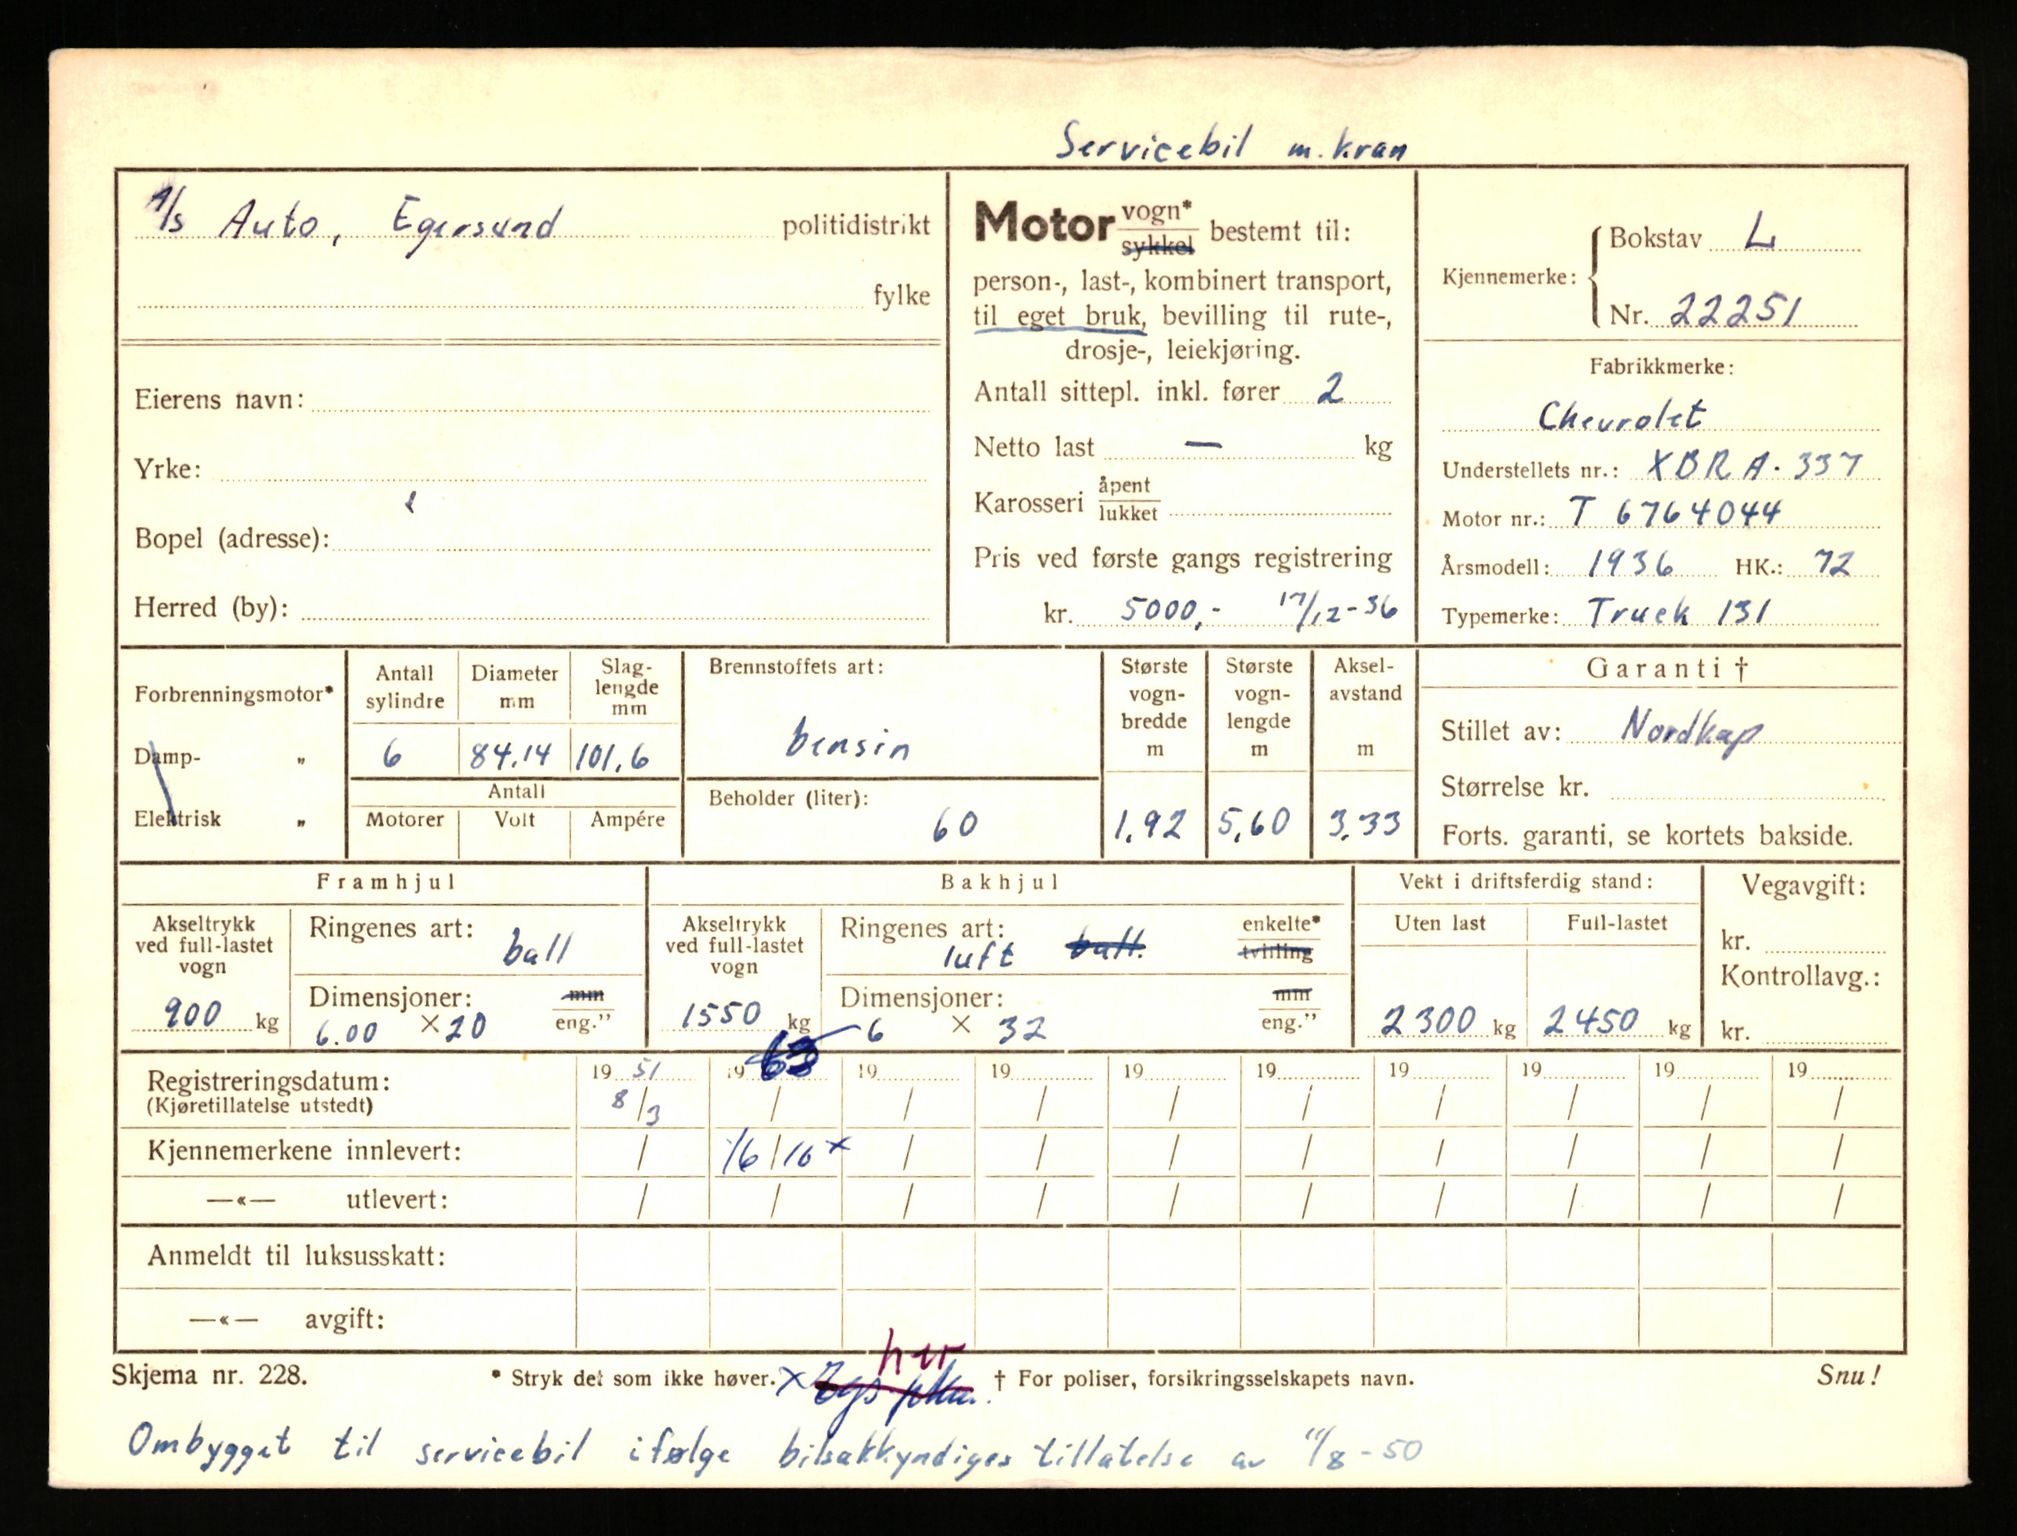 Servicebil m. kran
A/s Auto, Egersund politidistrikt
fylke
Eierens navn:
Yrke:
Bopel (adresse):
Herred (by):
Motor vogn* sykkel bestemt til:
person-, last-, kombinert transport,
til eget bruk, bevilling til rute-,
drosje-, leiekjøring.
Antall sittepl. inkl. fører 2
Netto last — kg
Karosseri åpent lukket
Pris ved første gangs registrering
kr. 5000,- 17/12-36
Kjennemerke: Bokstav L
Nr. 22251
Fabrikkmerke:
Chevrolet
Understellets nr.: XBRA. 337
Motor nr.: T 6764044
Årsmodell: 1936 HK.: 72
Typemerke: Truck 131
Forbrenningsmotor*
Damp- „
Elektrisk „
Antall sylindre Diameter mm Slaglengde mm
6 84.14 101.6
Antall
Motorer Volt Ampére
Brennstoffets art:
bensin
Beholder (liter):
60
Største vogn-bredde m
1.92
Største vogn-lengde m
5.60
Aksel-avstand m
3.33
Garanti †
Stillet av: Nordkap
Størrelse kr.
Forts. garanti, se kortets bakside.
Framhjul
Akseltrykk ved full-lastet vogn
900 kg
Ringenes art:
ball
Dimensjoner: mm eng."
6.00 × 20
Bakhjul
Akseltrykk ved full-lastet vogn
1550 kg
Ringenes art: enkelte* tvilling
luft ball.
Dimensjoner: mm eng."
6 × 32
Vekt i driftsferdig stand:
Uten last Full-lastet
2300 kg 2450 kg
Vegavgift:
kr.
Kontrollavg.:
kr.
Registreringsdatum: 19 51 19 63 19 19 19 19 19 19 19 19
(Kjøretillatelse utstedt) 8/3 / / / / / / / / /
Kjennemerkene innlevert: / 16/10 x / / / / / / / /
—«— utlevert: / / / / / / / / / /
Anmeldt til luksusskatt:
—«— avgift:
her
Skjema nr. 228. * Stryk det som ikke høver. x † For poliser, forsikringsselskapets navn. Snu!
Ombygget til servicebil ifølge bilsakkyndiges tillatelse av 11/8-50